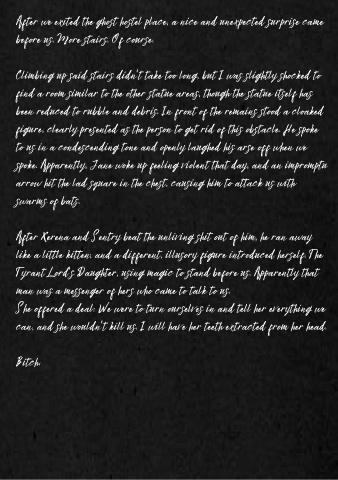 After we exited the ghost hostel place, a nice and unexpected surprise came
before us. More stairs. Of course.
Climbing up said stairs didn't take too long, but I was slightly shocked to
find a room similar to the other statue areas, though the statue itself has
been reduced to rubble and debris. In front of the remains stood a cloaked
figure, clearly presented as the person to get rid of this obstacle. He spoke
to us in a condescending tone and openly laughed his arse off when we
spoke. Apparently, Jane woke up feeling violent that day, and an impromptu
arrow hit the lad square in the chest, causing him to attack us with
swarms of bats.
After Kerena and Sentry beat the unliving shit out of him, he ran away
like a little kitten; and a different, illusory figure introduced herself. The
Tyrant Lord's Daughter, using magic to stand before us. Apparently that
man was a messenger of hers who came to talk to us.
She offered a deal: We were to turn ourselves in and tell her everything we
can, and she wouldn't kill us. I will have her teeth extracted from her head.
Bitch.